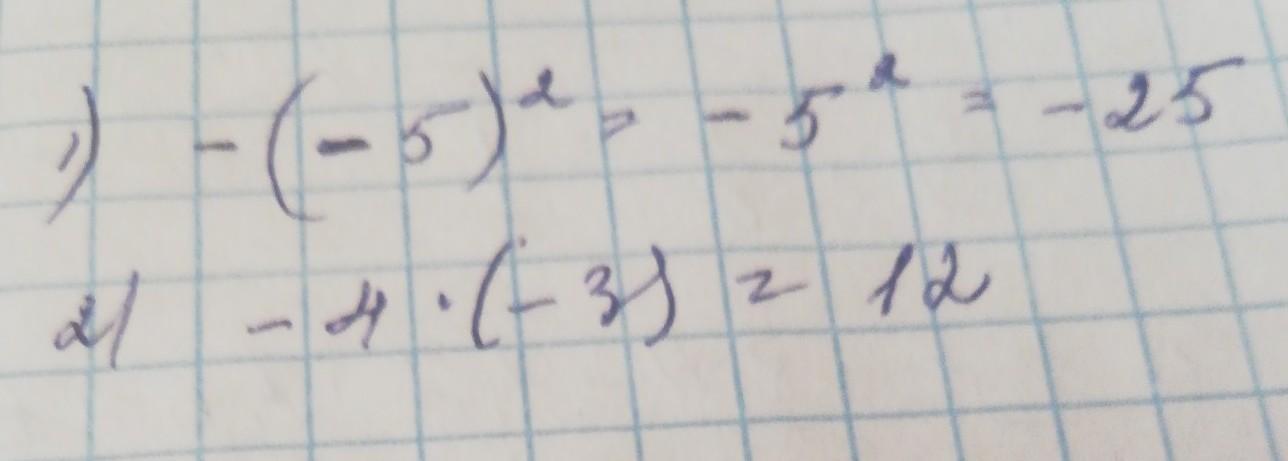 1) -(-5)² = -5² = -25
2) -4·(-3) = 12